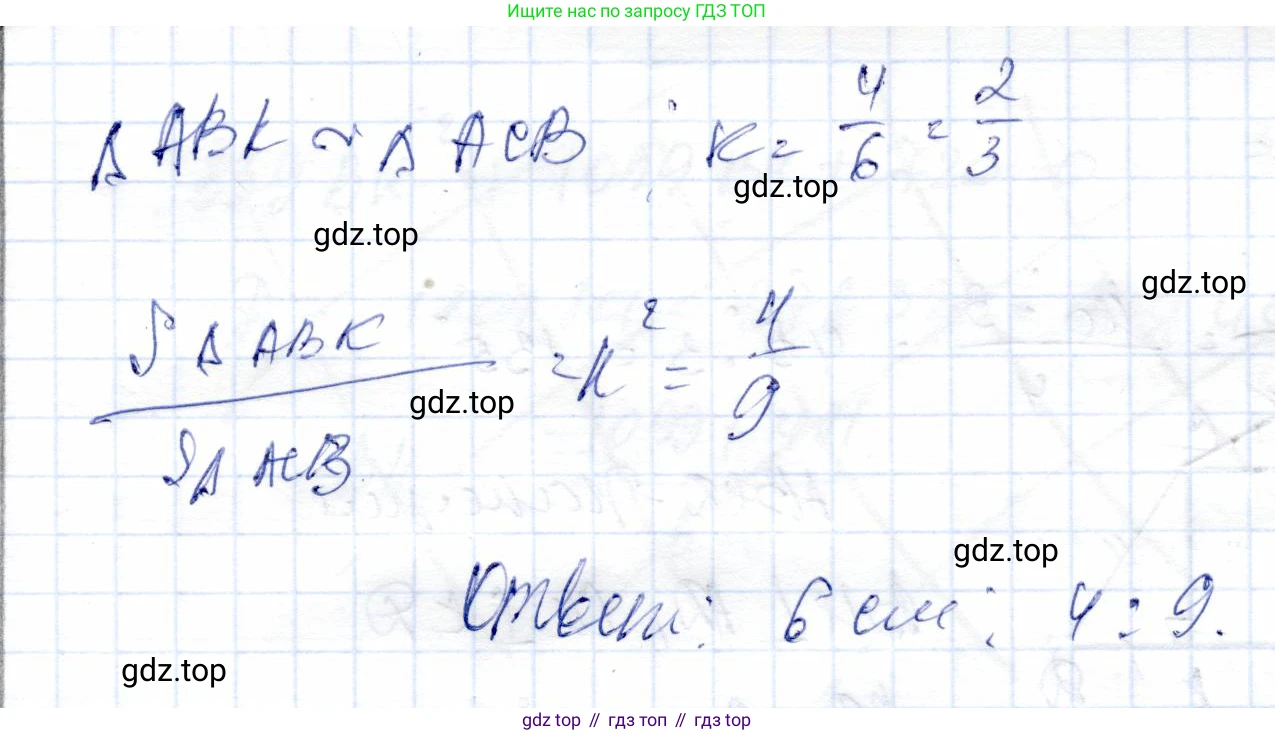 Ищите нас по запросу ГДЗ ТОП
Δ ABK ~ Δ ACB ; K = 4/6 = 2/3
gdz.top
gdz.top
gdz.top
S Δ ABK / S Δ ACB = K² = 4/9
gdz.top
gdz.top
Ответ: 6 см; 4:9.
gdz.top
gdz top // гдз топ // гдз top